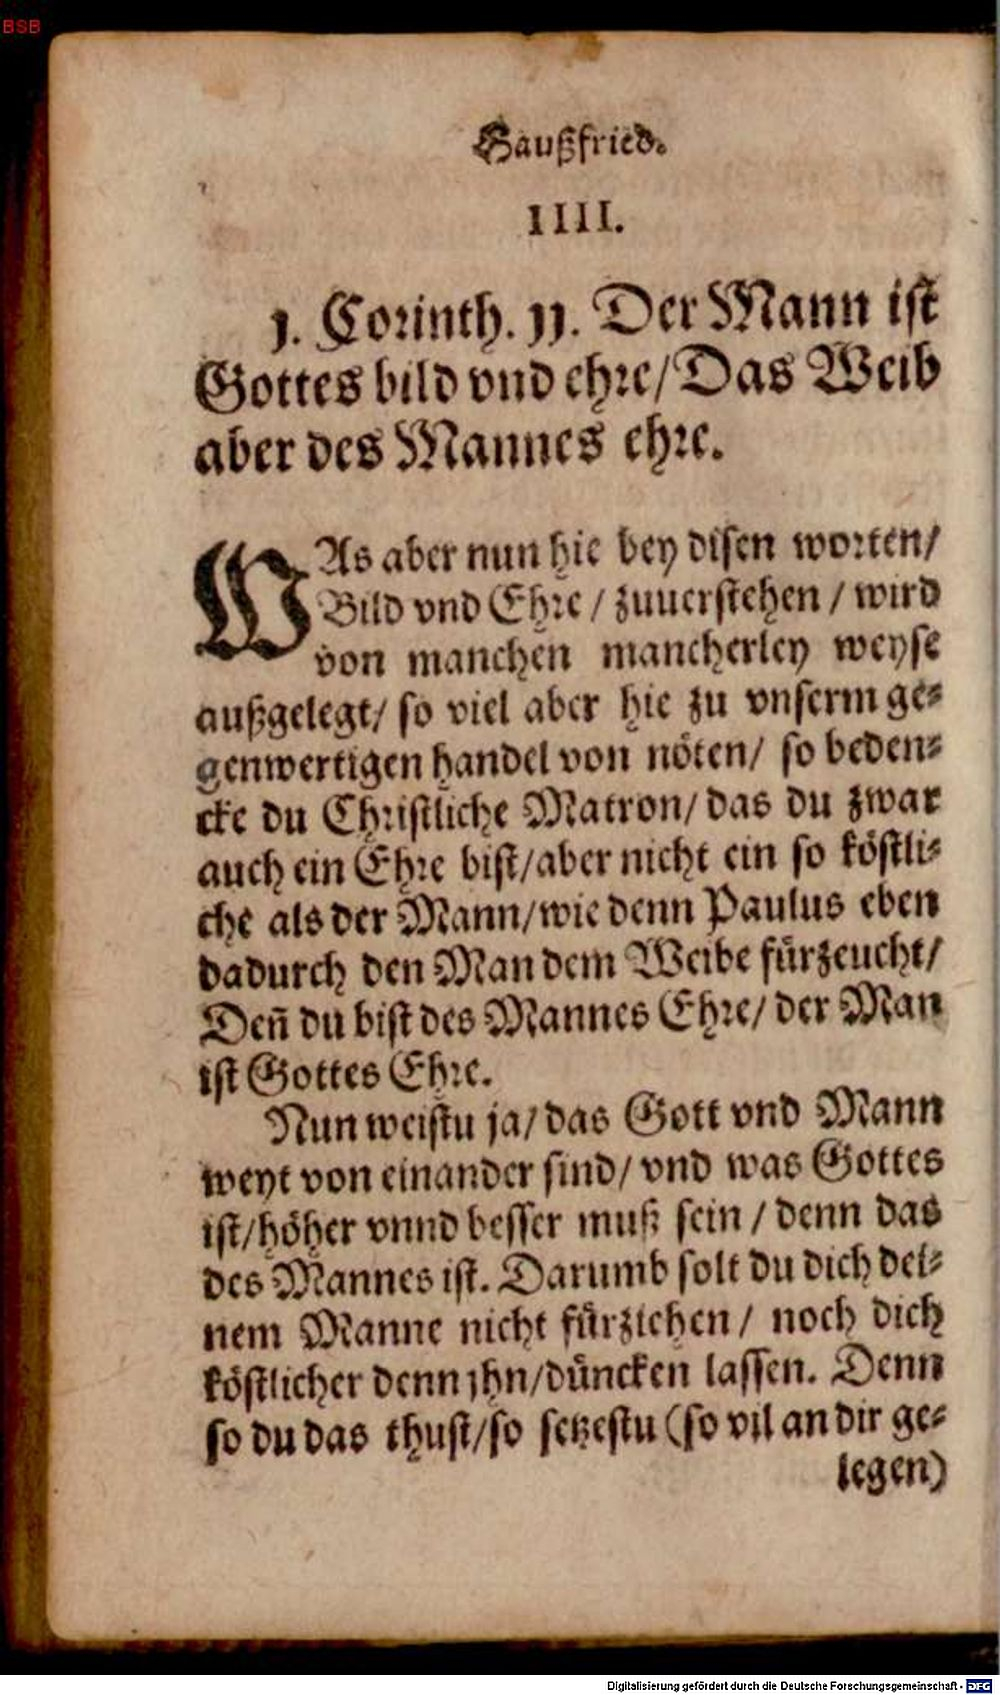 BSB
Haußfried.
IIII.
1. Corinth. 11. Der Mann ist
Gottes bild vnd ehre/ Das Weib
aber des Mannes ehre.
WAs aber nun hie bey disen worten/
Bild vnd Ehre / zuuerstehen / wird
von manchen mancherley weyse
außgelegt/ so viel aber hie zu vnserm ge-
genwertigen handel von nöten/ so beden-
cke du Christliche Matron/ das du zwar
auch ein Ehre bist/ aber nicht ein so köstli-
che als der Mann/ wie denn Paulus eben
dadurch den Man dem Weibe fürzeucht/
Deñ du bist des Mannes Ehre/ der Man
ist Gottes Ehre.
Nun weistu ja/ das Gott vnd Mann
weyt von einander sind/ vnd was Gottes
ist/ höher vnnd besser muß sein / denn das
des Mannes ist. Darumb solt du dich dei-
nem Manne nicht fürziehen / noch dich
köstlicher denn jhn/ düncken lassen. Denn
so du das thust/ so setzestu (so vil an dir ge-
legen)
Digitalisierung gefördert durch die Deutsche Forschungsgemeinschaft - DFG